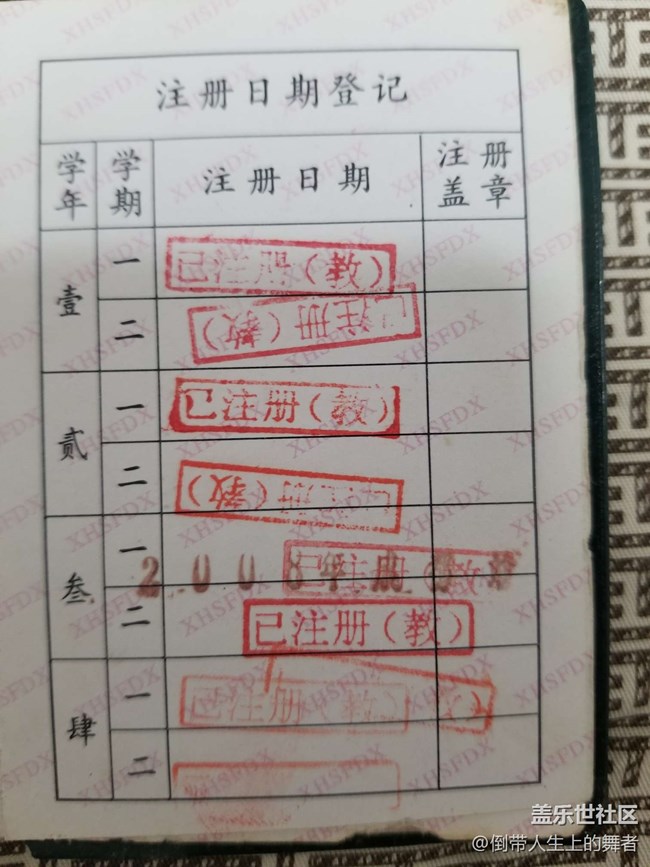 注册日期登记
学年 学期 注册日期 注册盖章
壹 一 已注册（教）
二 已注册（教）
贰 一 已注册（教）
二 注册（教）
叁 一 已注册（教）
2008年
二 已注册（教）
肆 一 已注册（教）
二
XHSFDX
盖乐世社区
@倒带人生上的舞者